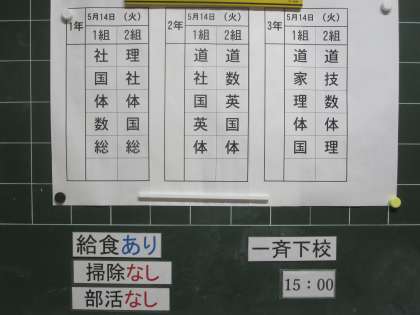 1年 5月14日 (火) 2年 5月14日 (火) 3年 5月14日 (火)
1組 2組 1組 2組 1組 2組
社 理 道 道 道 道
国 社 社 数 家 技
体 体 国 英 理 数
数 国 英 国 体 体
総 総 体 体 国 理
給食あり
掃除なし
部活なし
一斉下校
15:00